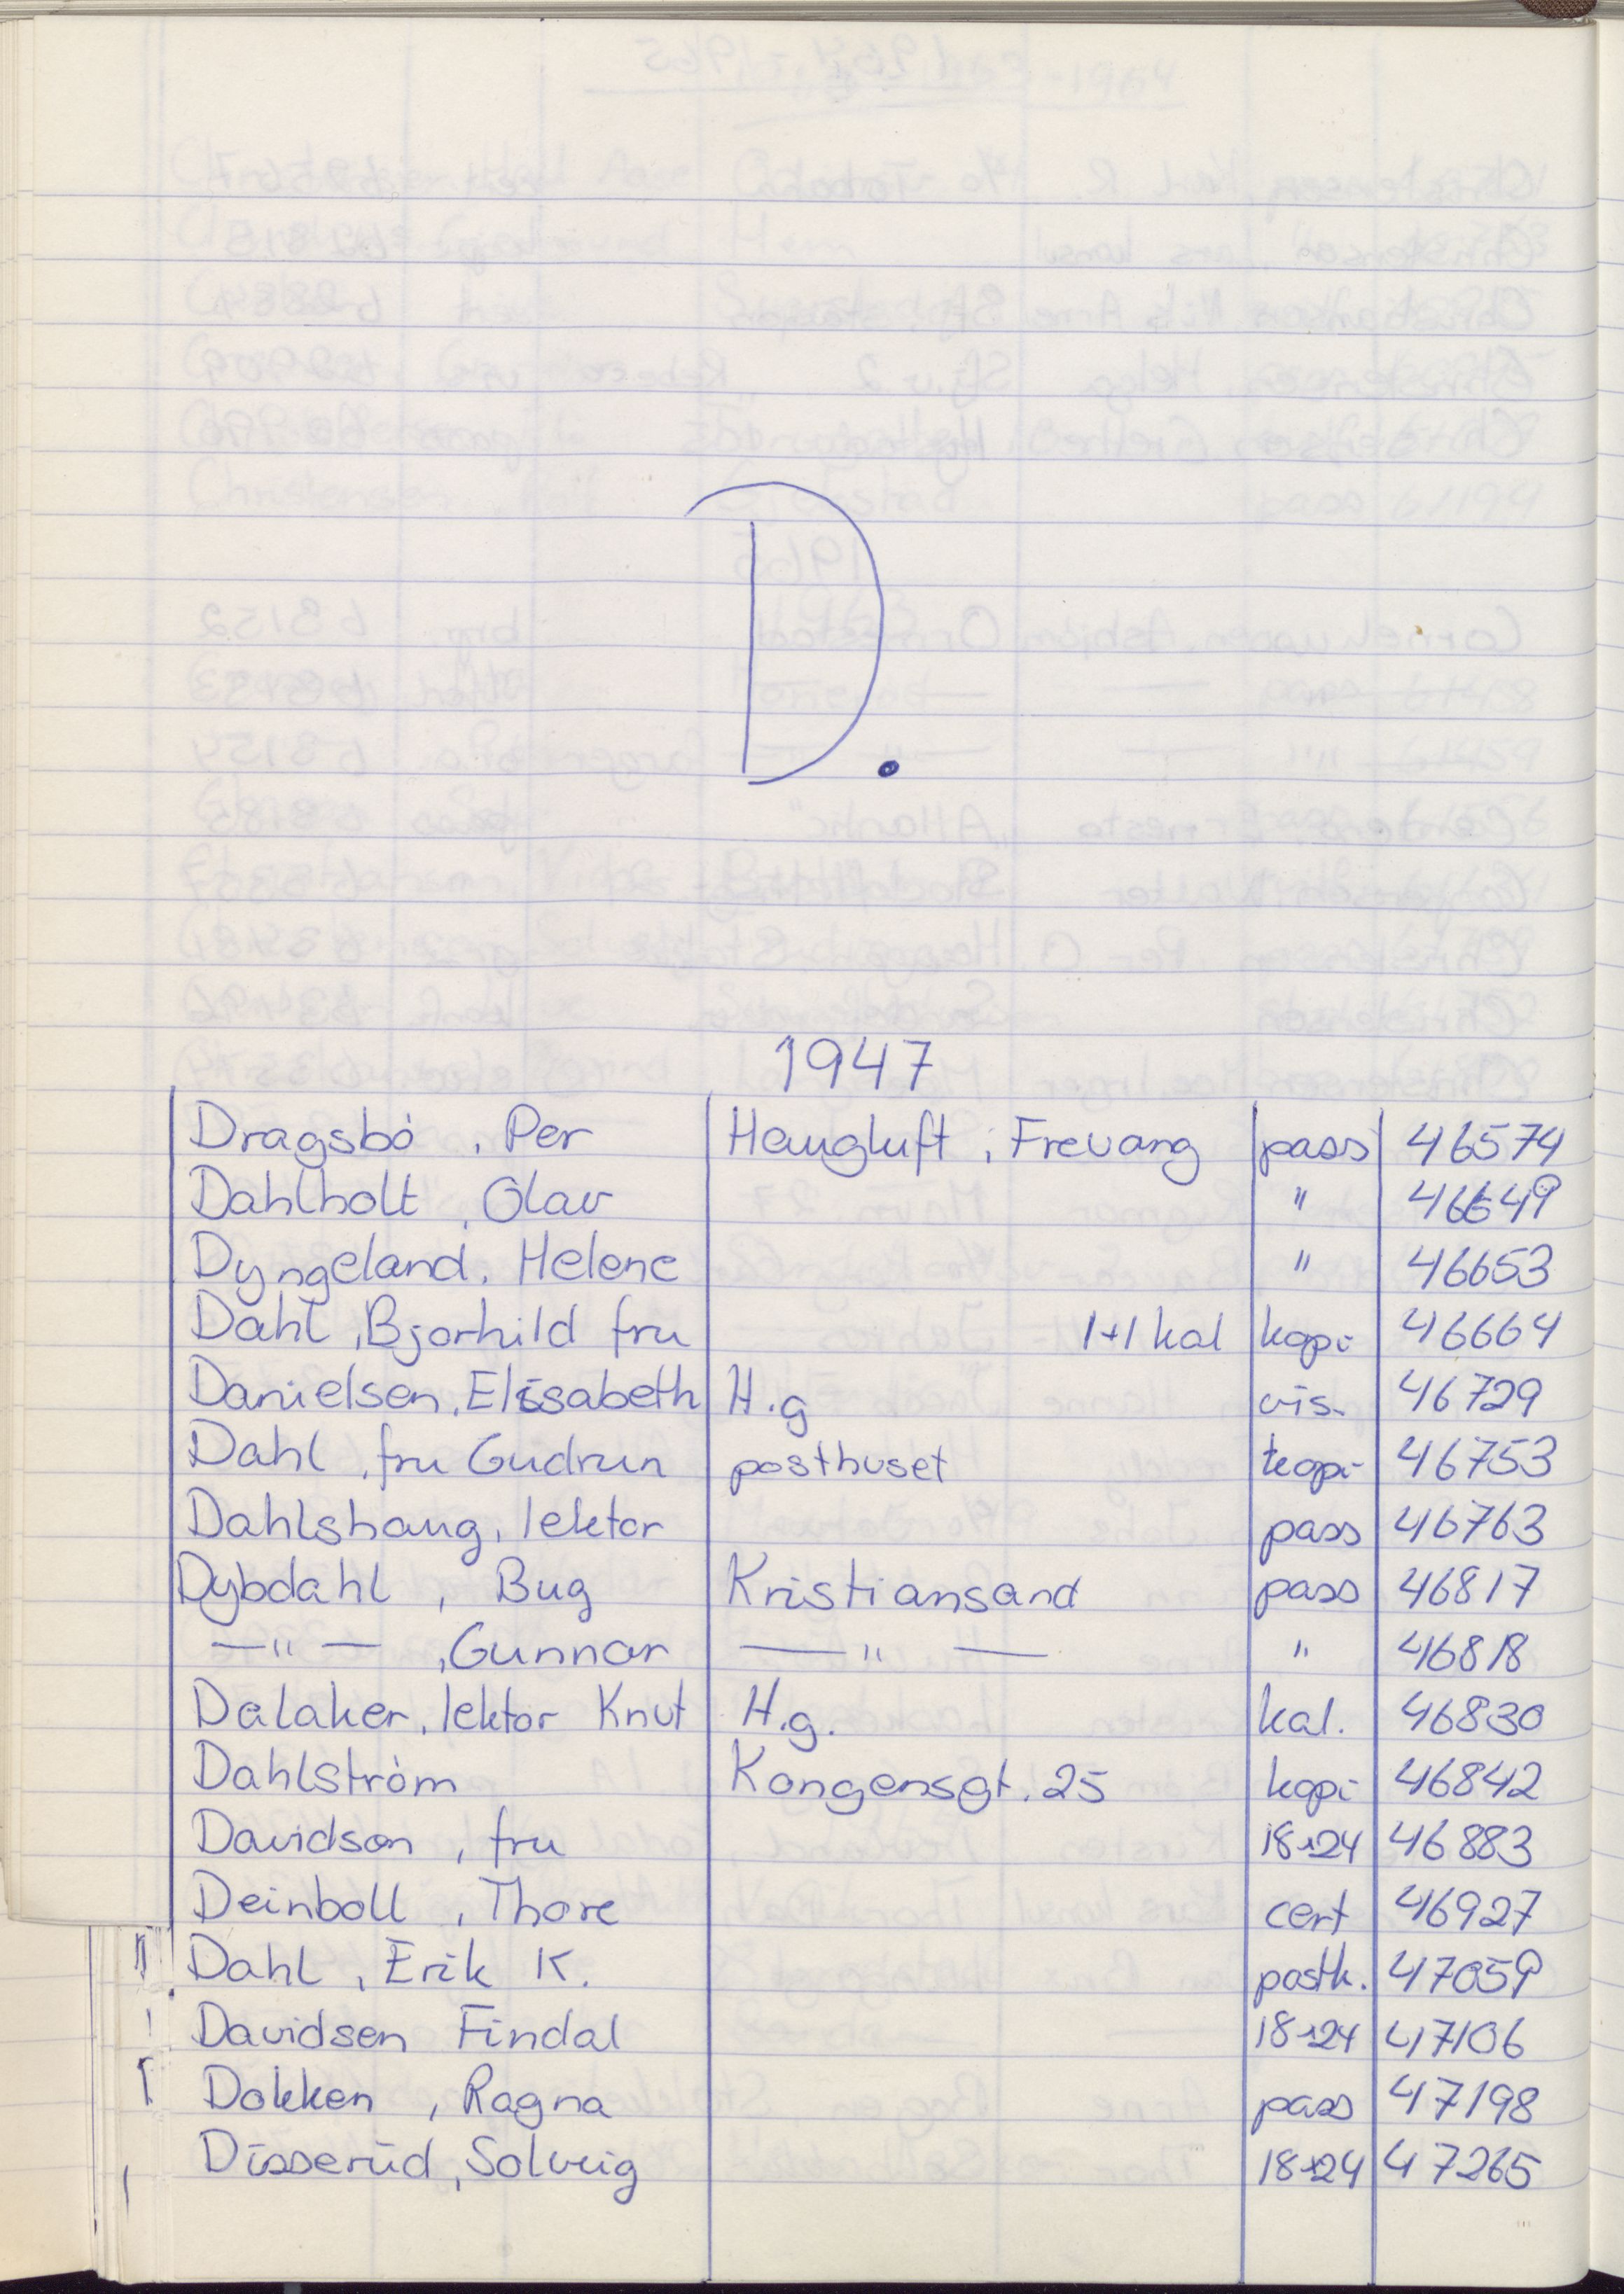 D.
1947
Dragsbó, Per Haugluft, Frevang pass 46574
Dahlholt, Olav " 46649
Dyngeland, Helene " 46653
Dahl, Bjorhild fru 1+1 kal kopi 46664
Danielsen, Elisabeth H.g vis. 46729
Dahl, fru Gudrun posthuset kopi 46753
Dahlshaug, lektor pass 46763
Dybdahl, Bug Kristiansand pass 46817
—"—, Gunnar —"— " 46818
Dalaker, lektor Knut H.g. kal. 46830
Dahlstróm Kongensgt. 25 kopi 46842
Davidson, fru 18x24 46883
Deinboll, Thore cert 46927
Dahl, Erik K. postk. 47059
Davidsen Findal 18x24 47106
Dokken, Ragna pass 47198
Disserud, Solveig 18x24 47265